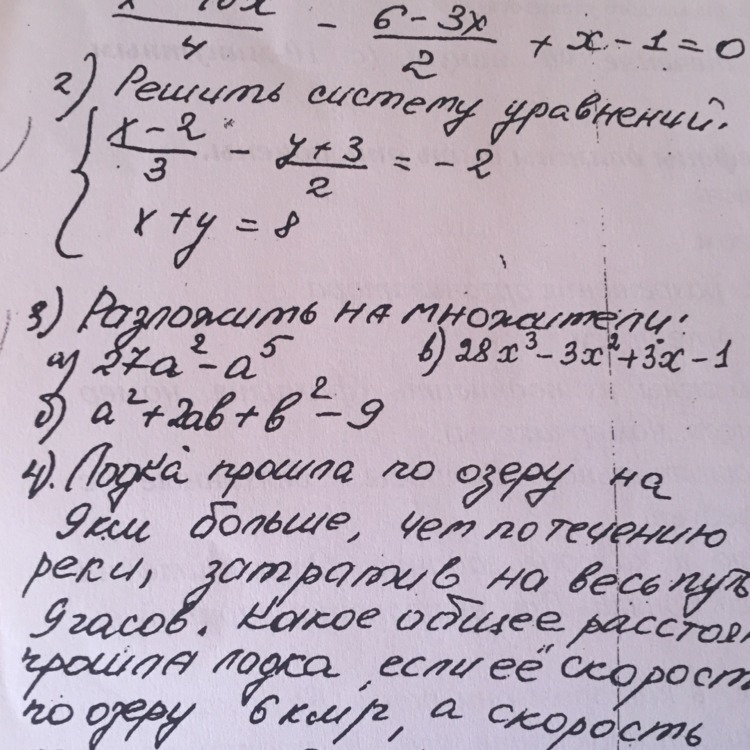 4 - 6 - 3x / 2 + x - 1 = 0
2) Решить систему уравнений.
{ x - 2 / 3 - y + 3 / 2 = - 2
x + y = 8
3) Разложить на множители:
а) 27a² - a⁵ в) 28x³ - 3x² + 3x - 1
б) a² + 2ab + b² - 9
4). Лодка прошла по озеру на
9км больше, чем по течению
реки, затратив на весь путь
9 часов. Какое общее расстоя
прошла лодка, если её скорост
по озеру 6 км/г, а скорость